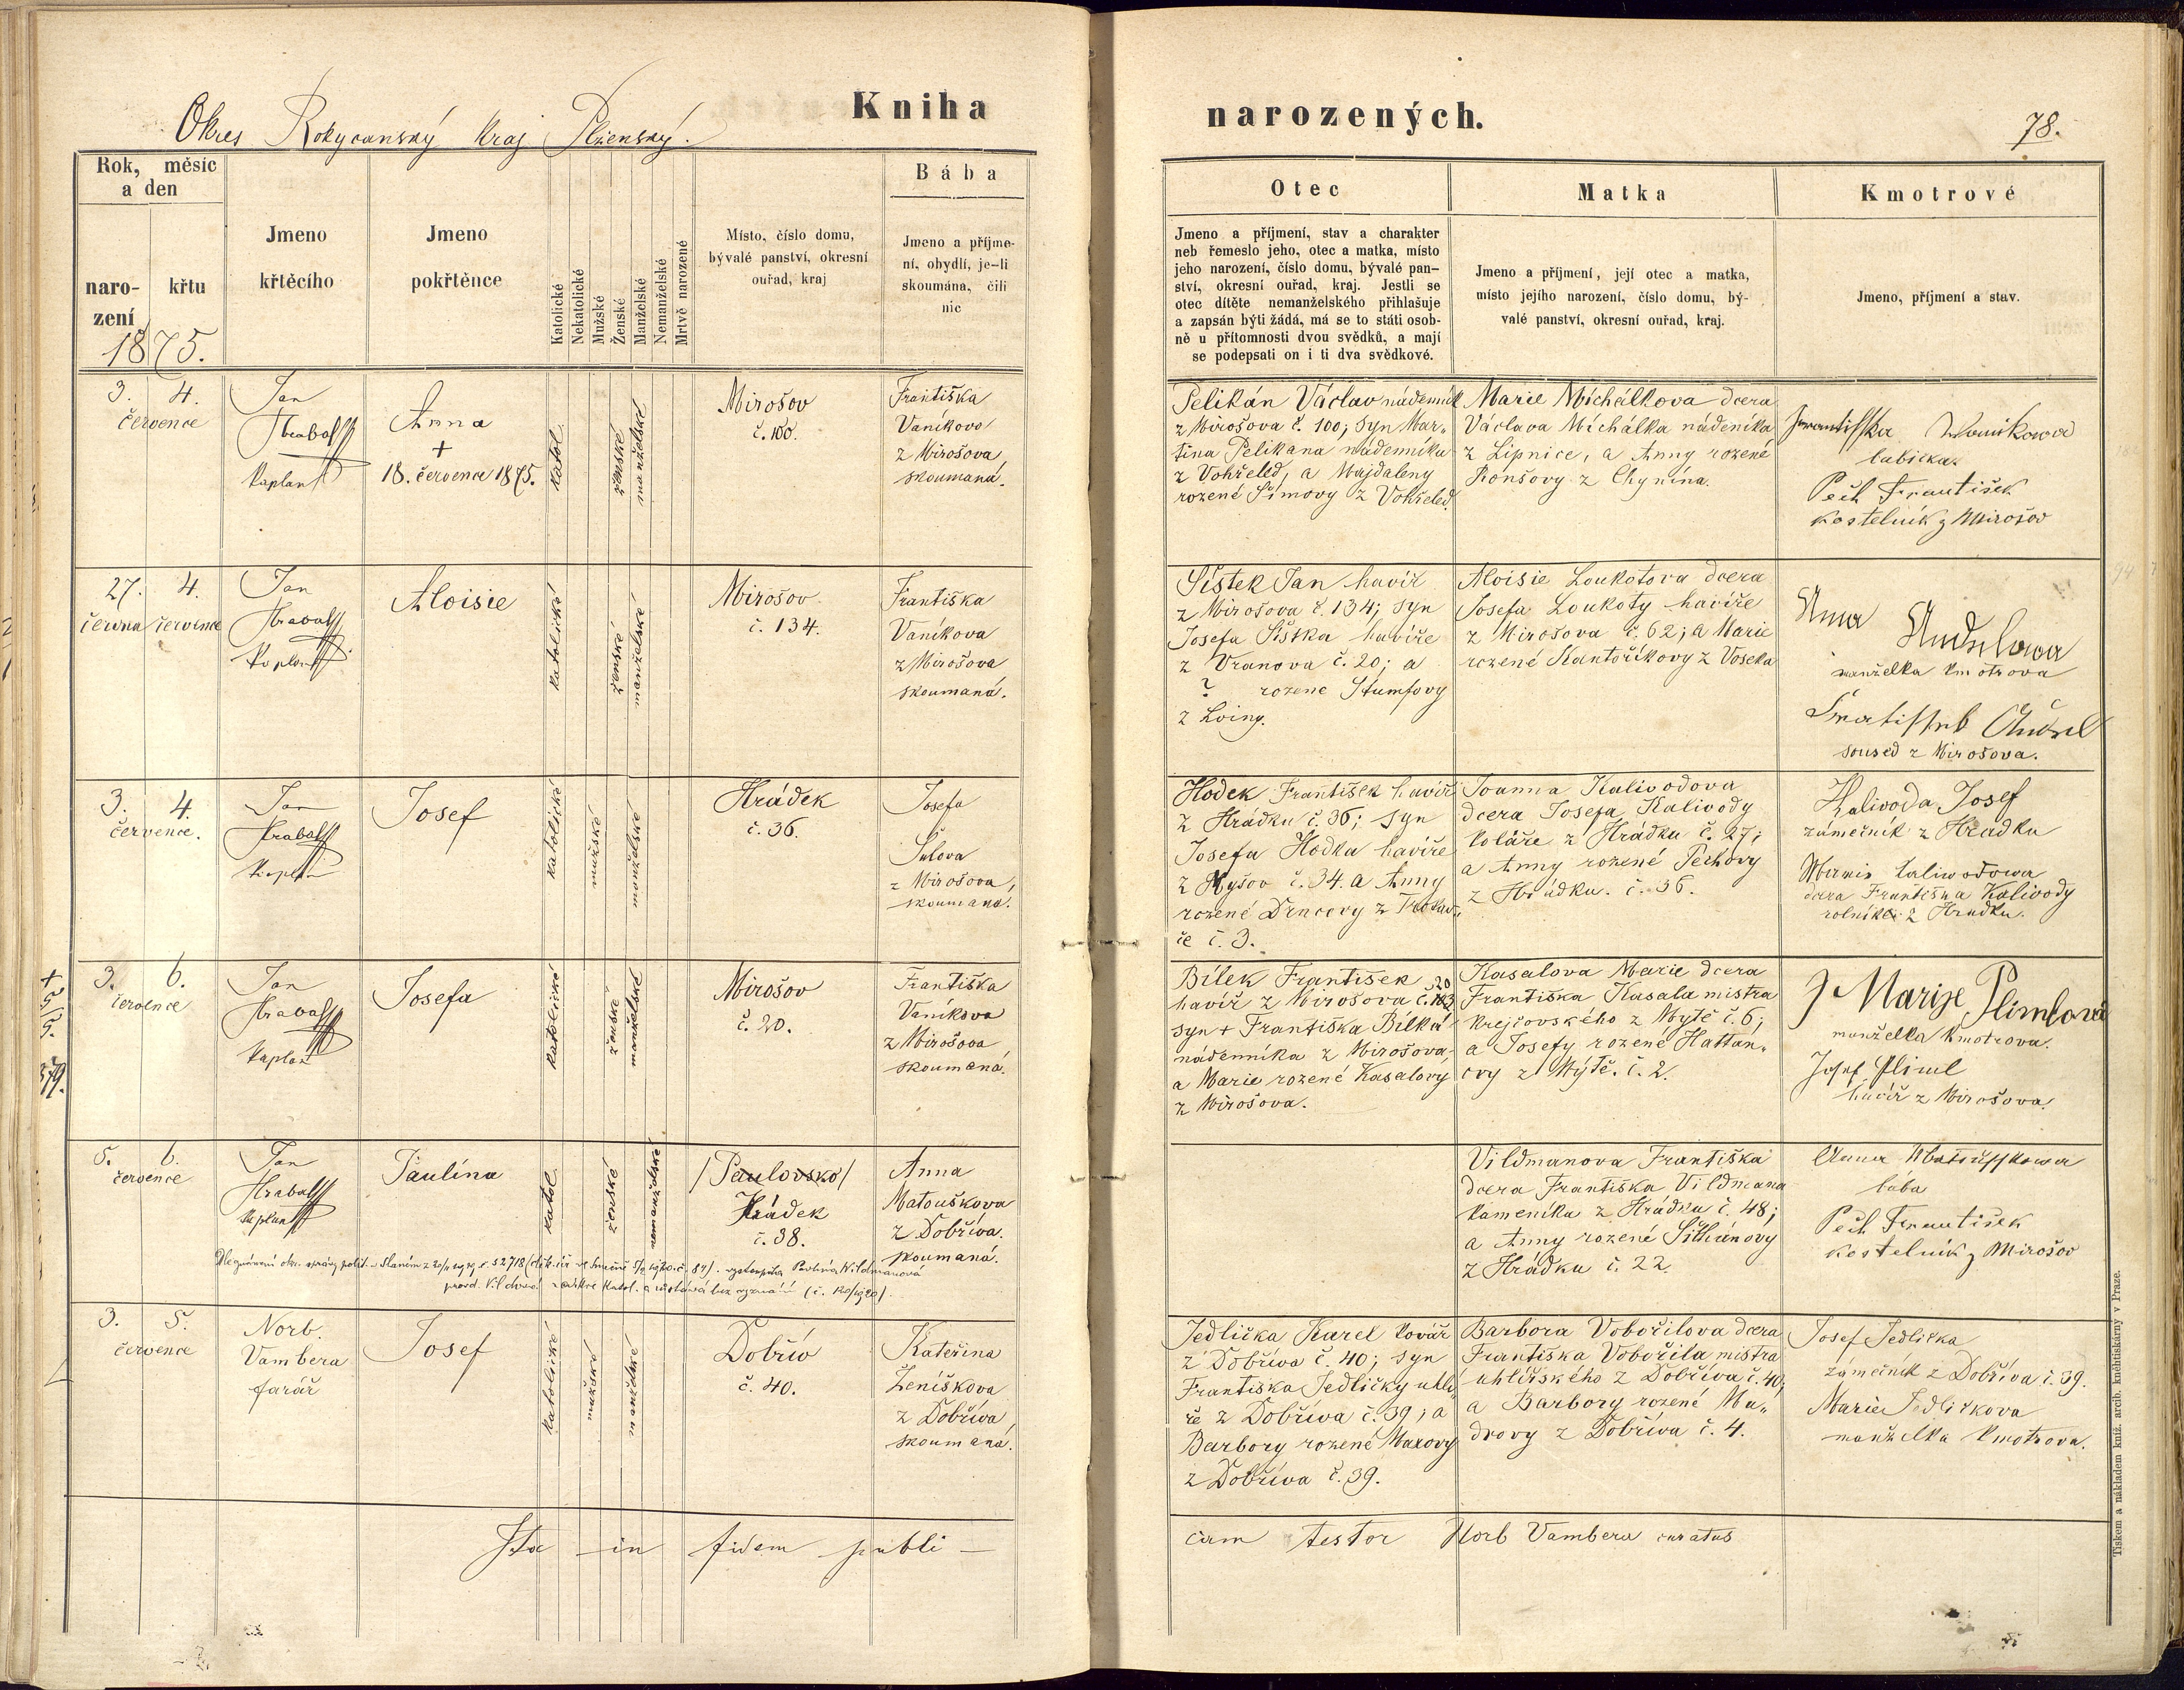 Okres Rokycanský Kraj Plzenský.
Kniha
narozených.
78.
Rok, měsíc
a den
naro-
zení
křtu
1875.
Jmeno
křtěcího
Jmeno
pokřtěnce
Katolické
Nekatolické
Mužské
Ženské
Manželské
Nemanželské
Mrtvě narozené
Místo, číslo domu,
bývalé panství, okresní
ouřad, kraj
Bába
Jmeno a příjme-
ní, obydlí, je-li
skoumána, čili
nic
Otec
Jmeno a příjmení, stav a charakter
neb řemeslo jeho, otec a matka, místo
jeho narození, číslo domu, bývalé pan-
ství, okresní ouřad, kraj. Jestli se
otec dítěte nemanželského přihlašuje
a zapsán býti žádá, má se to státi osob-
ně u přítomnosti dvou svědků, a mají
se podepsati on i ti dva svědkové.
Matka
Jmeno a příjmení, její otec a matka,
místo jejího narození, číslo domu, bý-
valé panství, okresní ouřad, kraj.
Kmotrové
Jmeno, příjmení a stav.
3. 4.
července
Jan
Hrabal
Kaplan
Anna
+
18. července 1875.
katol.
ženské
manželské
Mirošov
č. 100.
Františka
Vaníkova
z Mirošova
skoumaná.
Pelikán Václav nádenník
z Mirošova č. 100; syn Mar-
tina Pelikana nádenníka
z Vohřeled, a Majdaleny
rozené Šímovy z Vohřeled.
Marie Michálkova dcera
Václava Michálka nádeníka
z Lipnice, a Anny rozené
Ronšovy z Chynína.
Frantisska Wanikowa
babicka.
Pech František
kostelník z Mirošov
27. 4.
června července
Jan
Hrabal
Kaplan
Aloisie
katolické
ženské
manželské
Mirošov
č. 134.
Františka
Vaníkova
z Mirošova
skoumaná.
Šístek Jan havíř
z Mirošova č. 134; syn
Josefa Šístka havíře
z Vranova č. 20; a
? rozené Štumfovy
z Loing.
Aloisie Loukotova dcera
Josefa Loukoty havíře
z Mirošova č. 62; a Marie
rozené Kantoříkovy z Voseka
Anna
manželka kmotrova
soused z Mirošova.
3. 4.
července.
Jan
Hrabal
Kaplan
Josef
katolické
mužské
manželské
Hrádek
č. 36.
Josefa
Šulova
z Mirošova,
skoumaná.
Hodek František havíř
z Hrádku č. 36; syn
Josefa Hodka havíře
z Kyšov č. 34. a Anny
rozené Drncovy z
če č. 3.
Joanna Kalivodova
dcera Josefa Kalivody
koláře z Hrádku č. 27;
a Anny rozené Pechovy
z Hrádku. č. 36.
Kalivoda Josef
zámečník z Hrádku
Marie Kaliwodowa
dcera Františka Kalivody
rolníka z Hrádku.
+
5/5.
379.
3. 6.
července
Jan
Hrabal
Kaplan
Josefa
katolické
ženské
manželské
Mirošov
č. 20.
Františka
Vaníkova
z Mirošova
skoumaná.
Bílek František
havíř z Mirošova č. 20
syn + Františka Bílka
nádenníka z Mirošova,
a Marie rozené Kasalovy
z Mirošova.
Kasalova Marie dcera
Františka Kasala mistra
krejčovského z Mýtě č. 6;
a Josefy rozené Hattan-
ovy z Mýtě. č. 2.
Marije Plimlová
manželka kmotrova.
Josef Pliml
havíř z Mirošova.
5. 6.
července
Jan
Hrabal
Kaplan
Paulína
katol.
ženské
nemanželské
/Paulovsko/
Hrádek
č. 38.
Anna
Matouškova
z Dobříva.
skoumaná.
Vildmanova Františka
dcera Františka Vildmana
kameníka z Hrádku č. 48;
a Anny rozené Šilhánovy
z Hrádku č. 22.
Anna Matausskowa
bába
Pech František
kostelník z Mirošov
3. 5.
července
Norb.
Vambera
farář
Josef
katolické
mužské
manželské
Dobřív
č. 40.
Kateřina
Ženíškova
z Dobříva,
skoumaná.
Jedlička Karel kovář
z Dobříva č. 40; syn
Františka Jedličky uhlí-
ře z Dobříva č. 39; a
Barbory rozené Maxovy
z Dobříva č. 39.
Barbora Vobořilova dcera
Františka Vobořila mistra
uhlířského z Dobříva č. 40;
a Barbory rozené Ma-
drovy z Dobříva č. 4.
Josef Jedlička
zámečník z Dobříva č. 39.
Marie Jedličkova
manželka kmotrova.
Ita in fidem publi-
cam testor Norb Vambera curatus
Tiskem a nákladem kníž. arcib. kněhtiskárny v Praze.